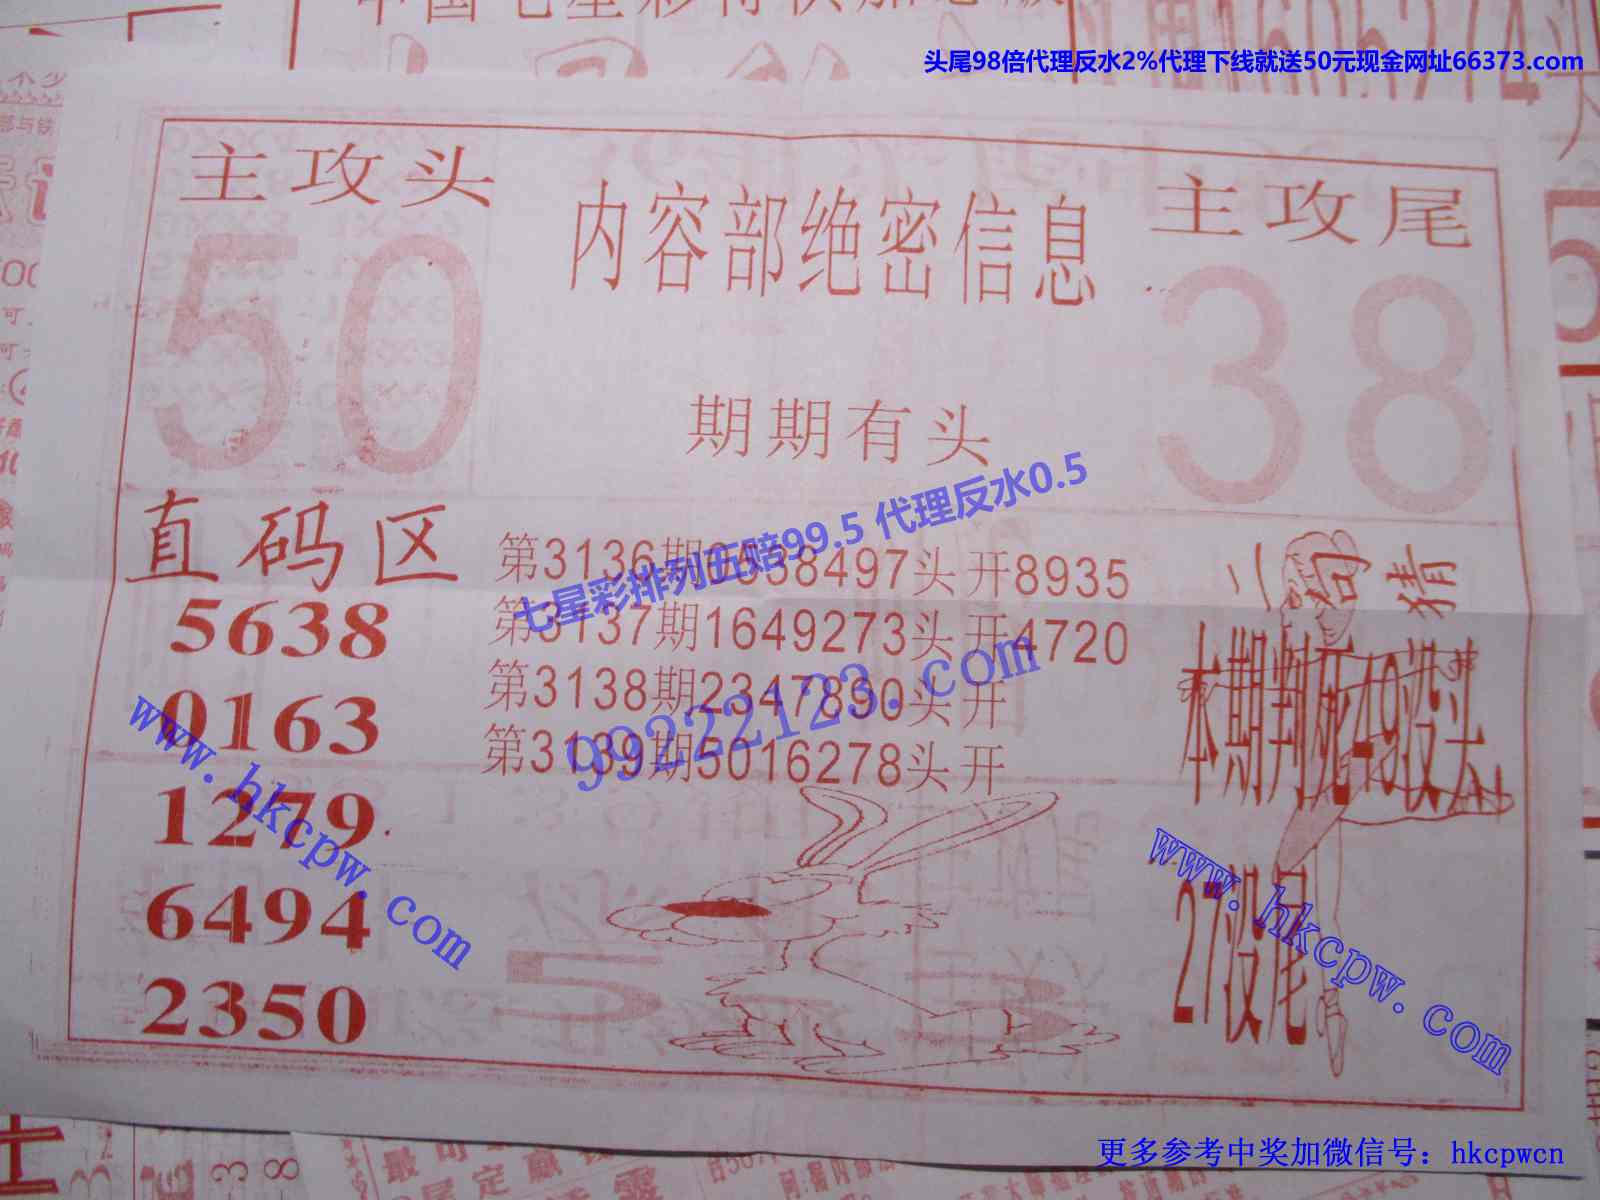 头尾98倍代理反水2%代理下线就送50元现金网址66373.com
主攻头
内容部绝密信息
主攻尾
50
38
期期有头
直码区
5638
0163
1279
6494
2350
七星彩排列五赔99.5 代理反水0.5
第3136期 8497头 开8935
第3137期1649273头 开4720
第3138期2347890头 开
第3139期5016278头 开
99222123.com
二句猜
本期判死49没头
27没尾
www.hkcpw.com
www.hkcpw.com
更多参考中奖加微信号：hkcpwcn